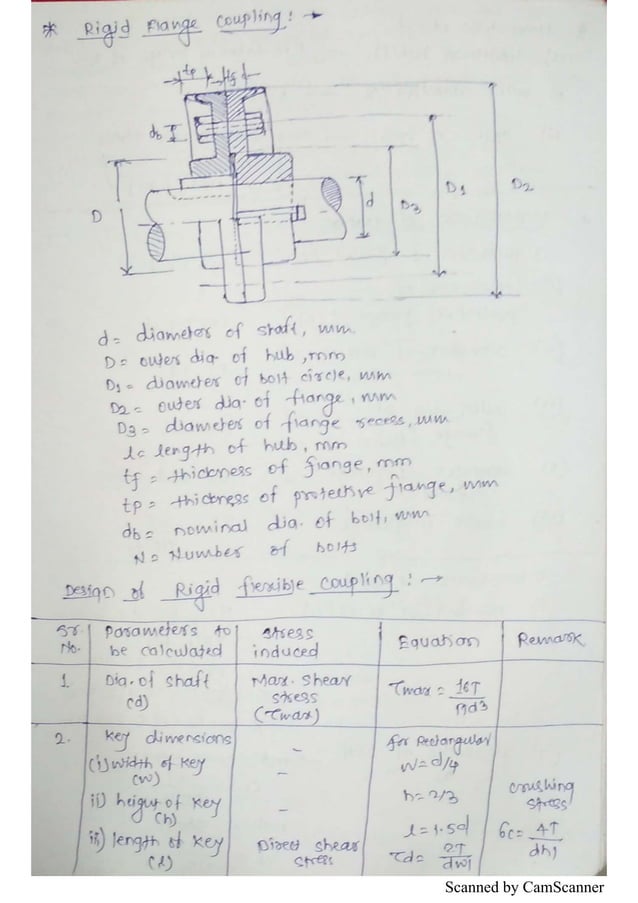 * Rigid Flange Coupling : →
tp tf
db
D
d
D3
D1
D2
d = diameter of shaft, mm
D = outer dia. of hub, mm
D1 = diameter of bolt circle, mm
D2 = outer dia. of flange, mm
D3 = diameter of flange recess, mm
l = length of hub, mm
tf = thickness of flange, mm
tp = thickness of protective flange, mm
db = nominal dia. of bolt, mm
N = Number of bolts
Design of Rigid flexible coupling : →
Sr. No. Parameters to be calculated Stress induced Equation Remark
1. Dia. of shaft (d) Max. shear stress (τmax) τmax = 16T / πd3
2. Key dimensions - for Rectangular
(i) width of key (w) - w = d/4
ii) height of key (h) - h = 2/3 crushing stress
iii) length of key (l) Direct shear stress l = 1.5d σc = 4T / dhl
τd = 2T / dwl
Scanned by CamScanner